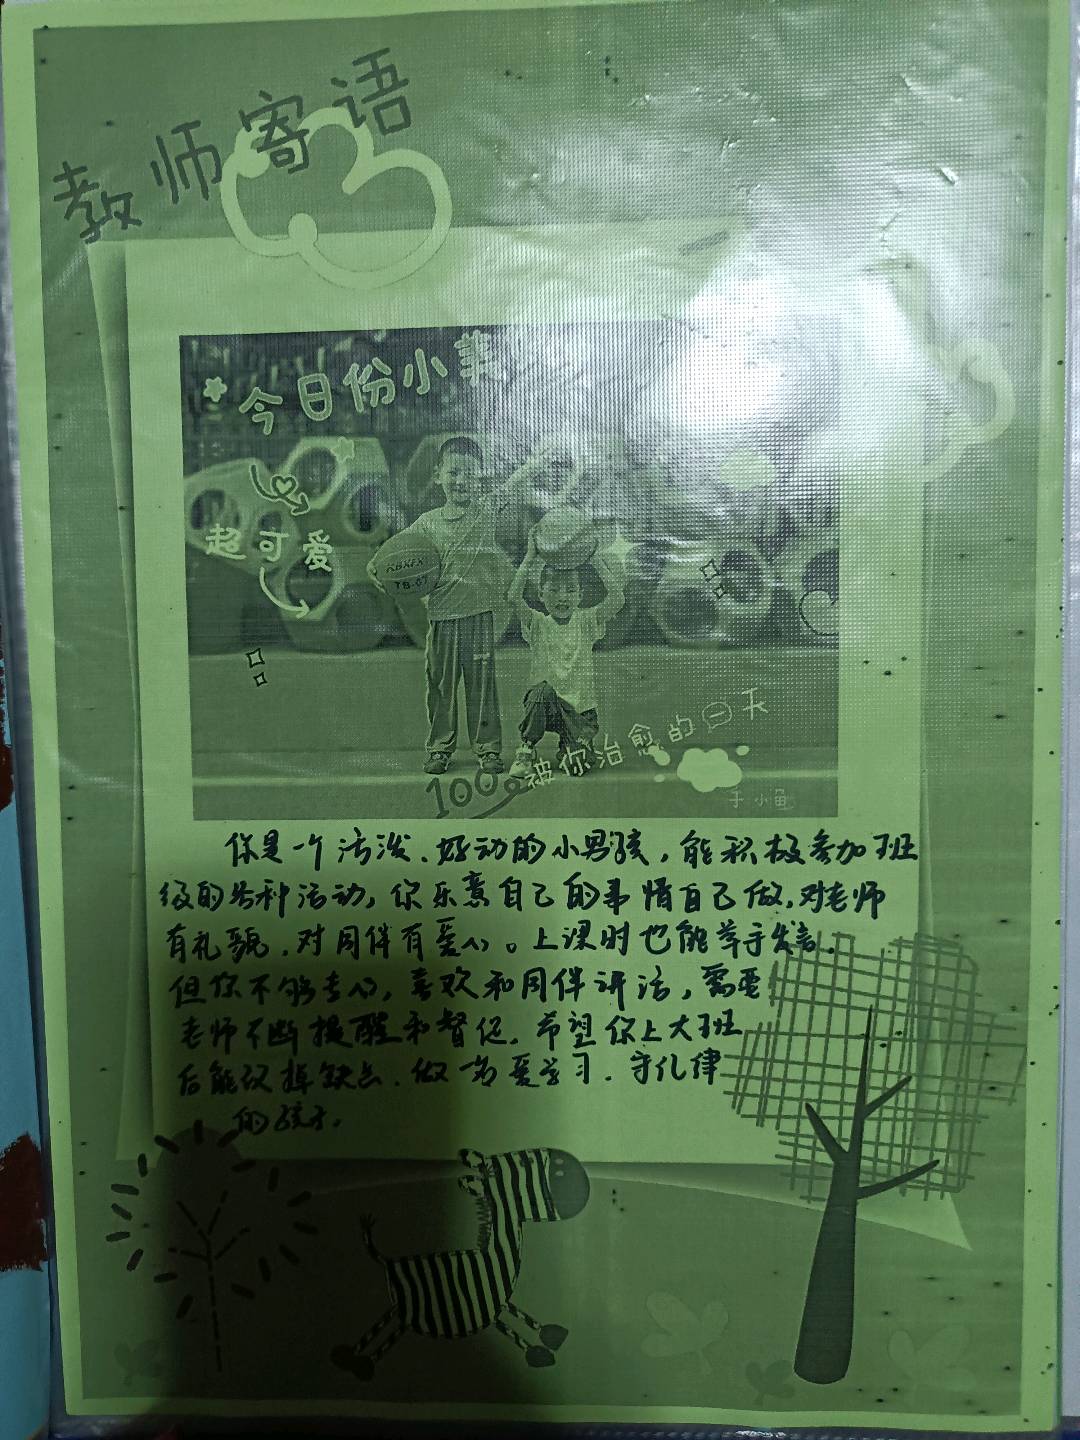 教师寄语
今日份小美
超可爱
RBXFX
TB-07
100
被你治愈的一天
于小鱼
你是一个活泼、好动的小男孩，能积极参加班
级的各种活动，你乐意自己的事情自己做，对老师
有礼貌，对同伴有爱心。上课时也能举手发言，
但你不够专心，喜欢和同伴讲话，需要
老师不断提醒和督促。希望你上大班
后能改掉缺点，做一名爱学习、守纪律
的孩子。